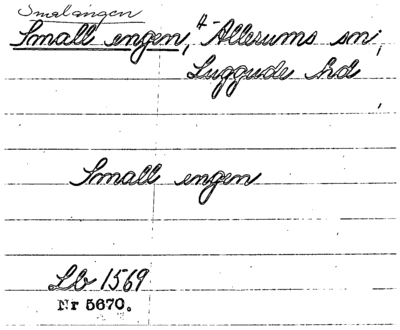 Smalängen
Small engen, 4 Allerums sn,
Luggude hd
Small engen
Lb 1569
Nr 5670.